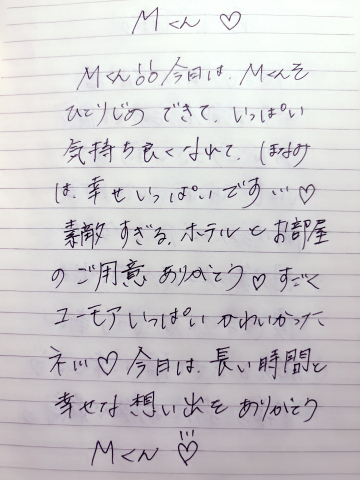 Mくん ♡
Mくん!! 今日は、Mくんを
ひとりじめ できて、いっぱい
気持ち良くなれて、ほなみ
は、幸せいっぱいです…♡
素敵 すぎる、ホテルとお部屋
のご用意 ありがとう♡ すごく
ユーモア いっぱい かわいかった
ネ!!! ♡ 今日は、長い時間と
幸せな 想い出を ありがとう
Mくん ♡